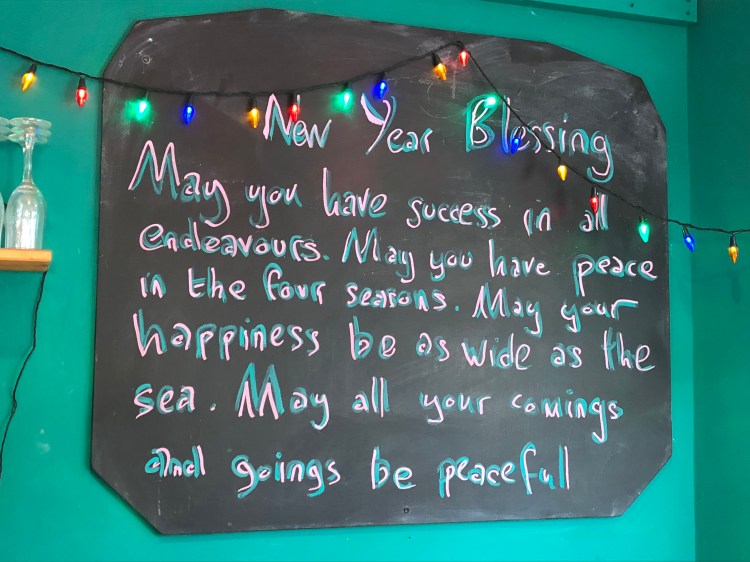 New Year Blessing
May you have success in all
endeavours. May you have peace
in the four seasons. May your
happiness be as wide as the
sea. May all your comings
and goings be peaceful